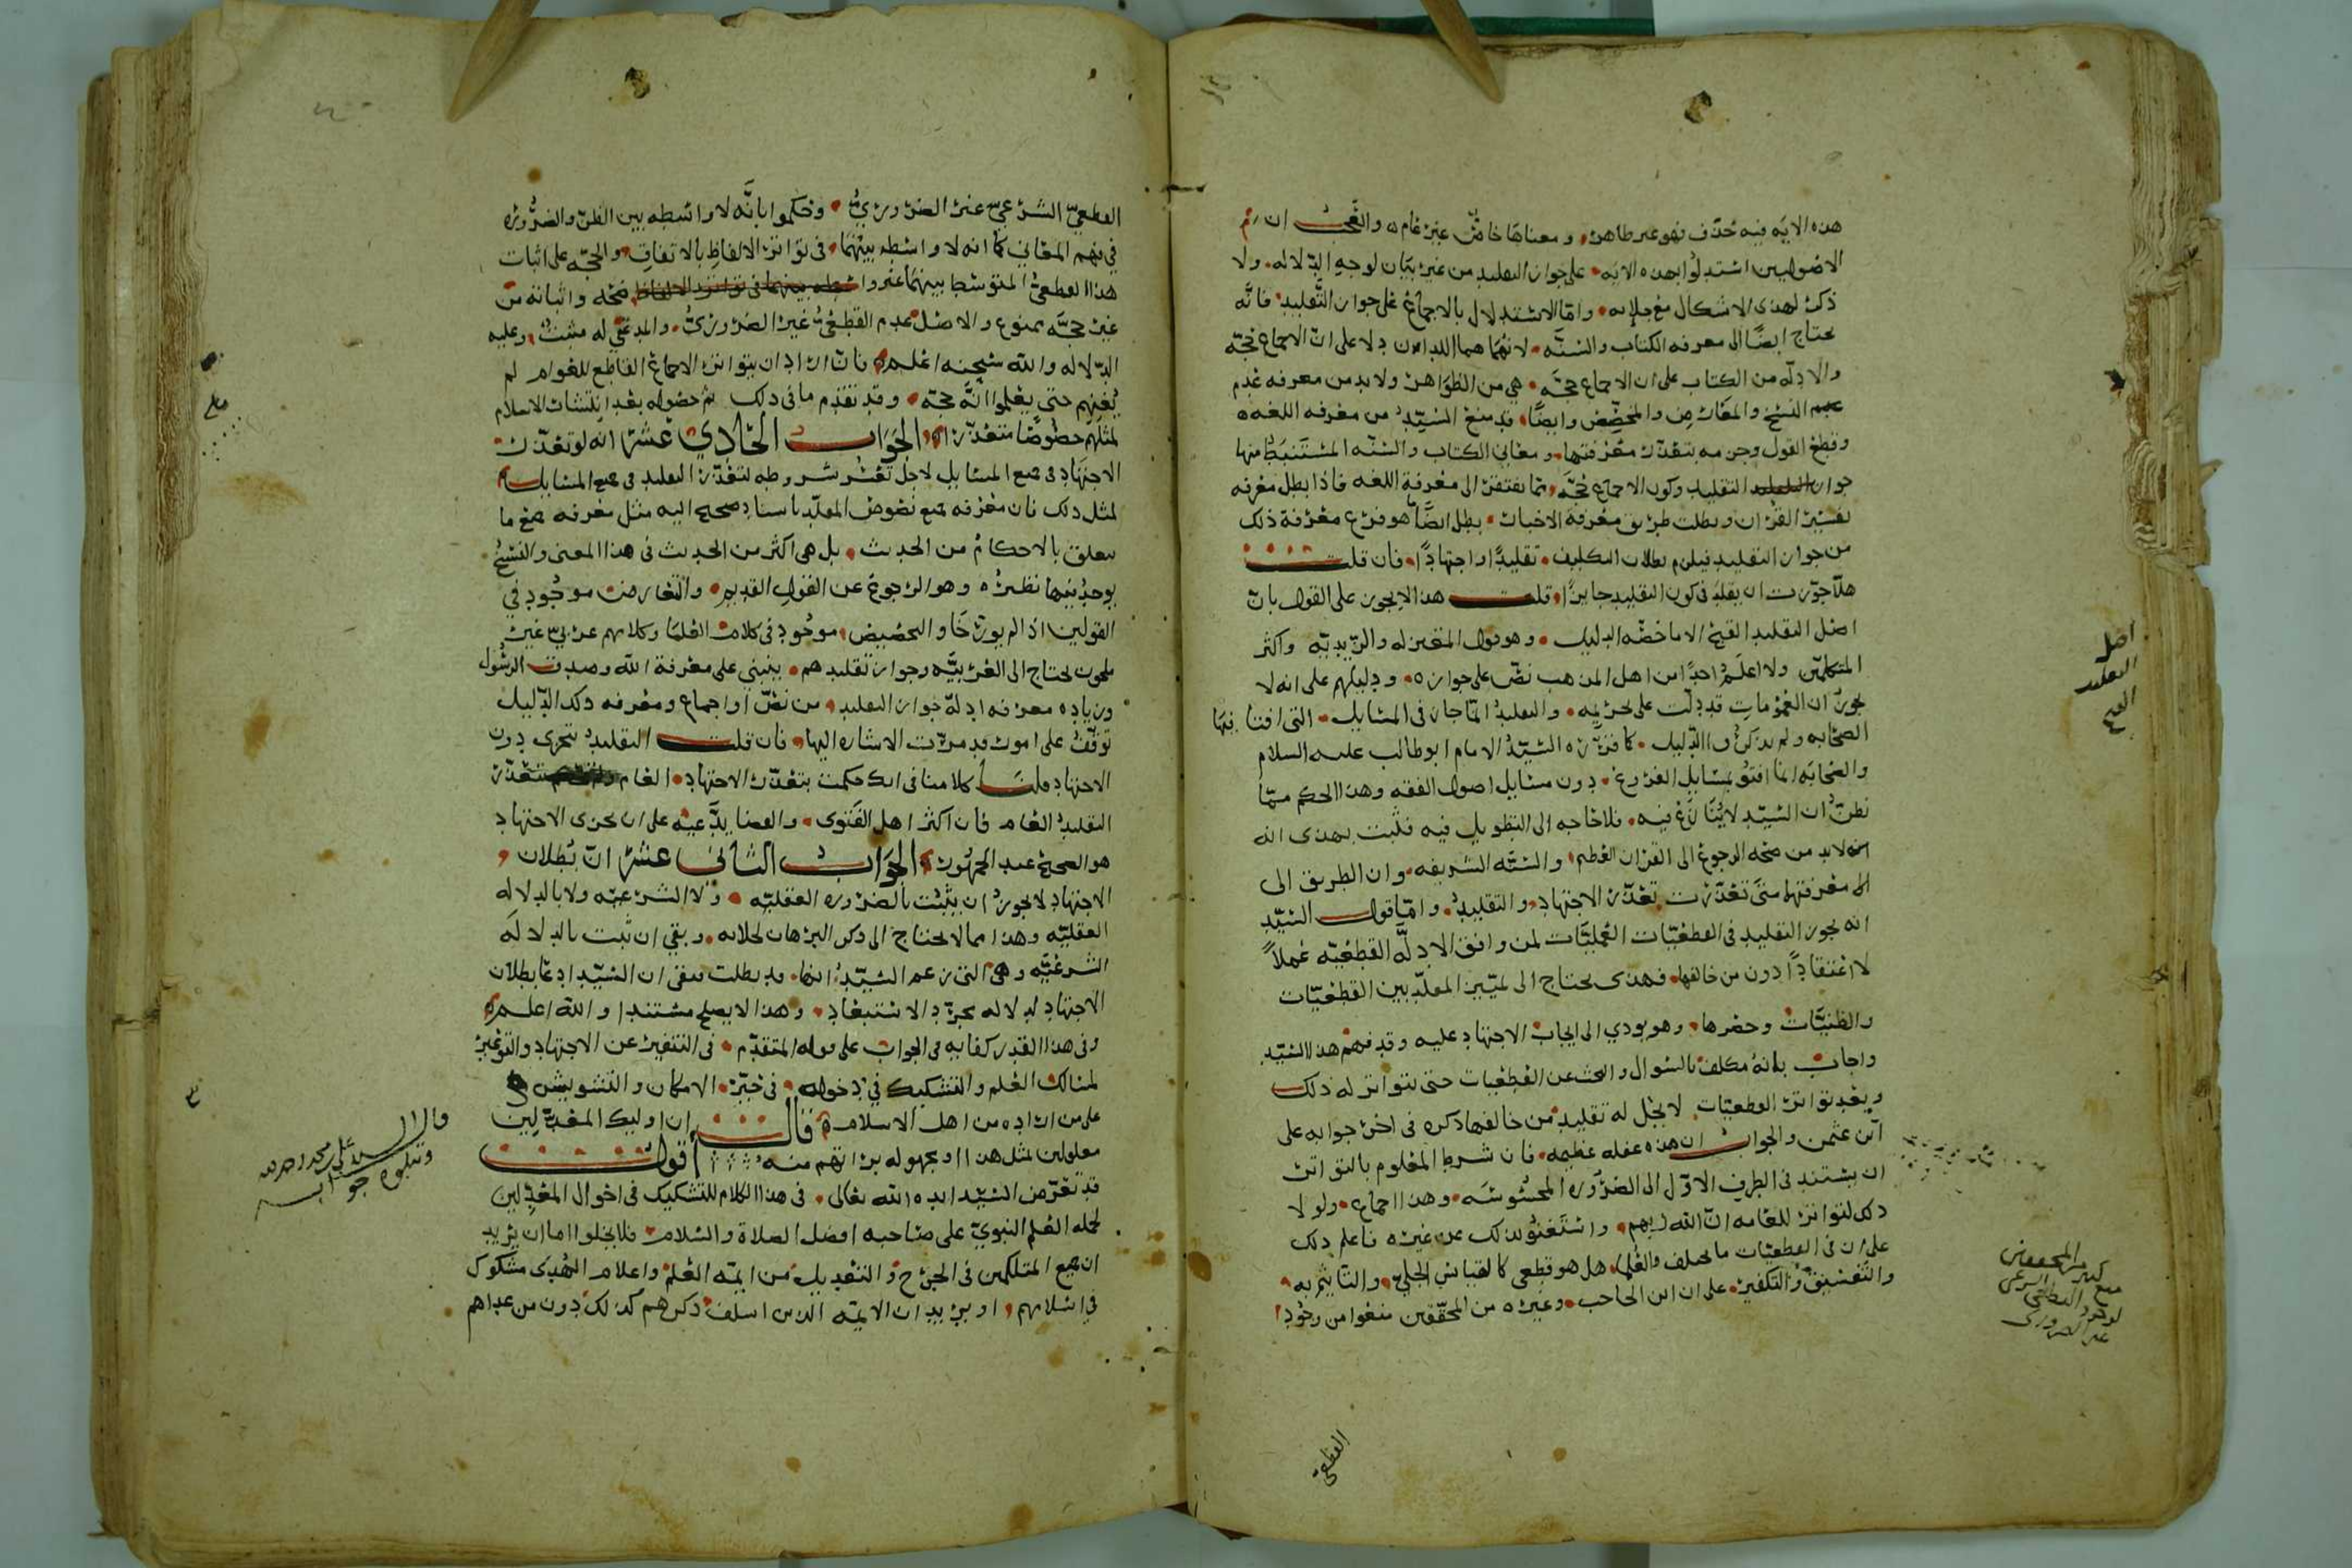 هذه الايه فيه حذف فهو غير ظاهر ومعناها خاص غير عام والعجب ان
الاصوليين استدلوا بهذه الايه على جواز التقليد من غير بيان لوجه الدلاله ولا
ذكر لهذى الاشكال مع جلايه واما الاستدلال بالاجماع على جواز التقليد فانه
يحتاج ايضا الى معرفه الكتاب والسنه لانهما هما اللذان دلا على ان الاجماع حجه
والادله من الكتاب على ان الاجماع حجه هي من الظواهر ولا بد من معرفه عدم
النسخ والمعارض والمخصص وايضا قد منع السيد من معرفه اللغه
وقطع القول وجزمه بتعذر معرفتها ومعاني الكتاب والسنه المستنبط منها
جواز التقليد وكون الاجماع حجه مما يفتقر الى معرفة اللغه فاذا بطل معرفه
تفسير القران وبطلت طريق معرفة الاخبار بطل ايضا ما هو فرع معرفة ذلك
من جواز التقليد فيلزم بطلان التكليف تقليدا واجتهادا فان قلت
هلا جوزت ان يقلد في كون التقليد جايزا قلت هذا لا يجوز على القول بان
اصل التقليد القبح الا ما خصه الدليل وهو قول المعتزله والزيديه واكثر
المتكلمين ولا اعلم احدا من اهل المذهب نص على جوازه ودليلهم على انه لا
يجوز ان العمومات قد دلت على تحريمه والتقليد انما جاز في المسايل التي افتا فيها
الصحابه ولم يذكروا الدليل كما قرره السيد الامام ابو طالب عليه السلام
والصحابه انما افتوا بمسايل الفروع دون مسايل اصول الفقه وهذا الحكم مما
نظن ان السيد لا ينازع فيه فلا حاجه الى التطويل فيه فثبت بهذى انه
انه لا بد من صحه الرجوع الى القران العظيم والسنه الشريفه وان الطريق الى
الى معرفتها متى تعذرت تعذر الاجتهاد والتقليد واما قول السيد
انه يجوز التقليد في القطعيات العمليات لمن وافق الادله القطعيه عملا
لا اعتقادا دون من خالفها فهذى يحتاج الى تمييز المقلد بين القطعيات
والظنيات وحصرها وهو يودي الى ايجاب الاجتهاد عليه وقد فهم هذا السيد
واجاب بانه مكلف بالسوال والبحث عن القطعيات حتى يتواتر له ذلك
وبعد تواتر القطعيات لا يحل له تقليد من خالفها ذكره في اخر جوابه على
ابن عثمن والجواب ان هذه غفله عظيمه فان شرط المعلوم بالتواتر
ان يستند في الطرف الاول الى الضروره المحسوسه وهذا اجماع ولولا
ذلك لتواتر للعامه ان الله ربهم واستغنوا بذلك عن غيره فاعلم ذلك
على ان في القطعيات ما يختلف والعلما هل هو قطعي كالقياس الجلي والتاثيم به
والتفسيق والتكفير على ان ابن الحاجب وغيره من المحققين منعوا من وجود
القطعي
اصل
التقليد
القبح
منع كثير من المحققين
لوجود القطعي الشرعي
غير الضروري
القطعي الشرعي غير الضروري وحكموا بانه لا واسطه بين الظن والضروره
في فهم المعاني كما انه لا واسطه بينهما في تواتر الالفاظ بالاتفاق والحجه على اثبات
هذا القطعي المتوسط بينهما صحه واثباته من
غير حجه ممنوع والاصل عدم القطعي غير الضروري والمدعي له مثبت وعليه
الدلاله والله سبحنه اعلم فان اراد ان يتواتر الاجماع القاطع للعوام لم
يغنهم حتى يعلموا انه حجه وقد تقدم ما في ذلك ثم حصوله بعد انتشار الاسلام
لمثلهم خصوصا متعذر الجواب الحادي عشر انه لو تعذر
الاجتهاد في جميع المسايل لاجل تعسر شروطه لتعذر التقليد في جميع المسايل
لمثل ذلك فان معرفه جميع نصوص المقلد باسناد صحيح اليه مثل معرفه جميع ما
يتعلق بالاحكام من الحديث بل هي اكثر من الحديث في هذا المعنى والنسخ
يوجد فيها نظيره وهو الرجوع عن القول القديم والتعارض موجود في
القولين اذا لم يورخا والتخصيص موجود في كلام العلما وكلامهم عربي غير
ملحون يحتاج الى العربيه وجواز تقليدهم ينبني على معرفة الله وصدق الرسول
وزياده معرفه ادلة جواز التقليد من نص او اجماع ومعرفه ذلك الدليل
توقف على امور قد مرت الاشاره اليها فان قلت التقليد يتجزى دون
الاجتهاد قلنا كلامنا في انك حكمت بتعذر الاجتهاد العام تعذر
التقليد العام فان اكثر اهل الفتوى والقضا يدعيه على ان تجزى الاجتهاد
هو الصحيح عند الجمهور الجواب الثاني عشر ان بطلان
الاجتهاد لا يجوز ان يثبت بالضروره العقليه ولا الشرعيه ولا بالدلاله
العقليه وهذا مما لا يحتاج الى ذكر البرهان لجلايه وبقي ان يثبت بالدلاله
الشرعيه وهي التي زعم السيد انها قد بطلت فبقي ان السيد ادعا بطلان
الاجتهاد لا لدلاله بمجرد الاستبعاد وهذا لا يصلح مستندا والله اعلم
وفي هذا القدر كفايه في الجواب على قوله المتقدم في التنفير عن الاجتهاد والتوعير
لمسالك العلم والتشكيك في دخوله في حيز الامكان والتشويش
على من اراده من اهل الاسلام قال ان اوليك المعدلين
معلولين بمثل هذا او مجهوله براتهم منه اقول
قد تعرض السيد ايده الله تعالى في هذا الكلام للتشكيك في احوال المعدلين
لحمله العلم النبوي على صاحبه افضل الصلاة والسلام فلا يخلوا اما ان يريد
ان جميع المتكلمين في الجرح والتعديل من ايمة العلم واعلام الهدى مشكوك
في اسلامهم او يريد ان الايمه الذين اسلف ذكرهم كذلك دون من عداهم
قال السيد علي بن محمد
ويتلوه جوابه